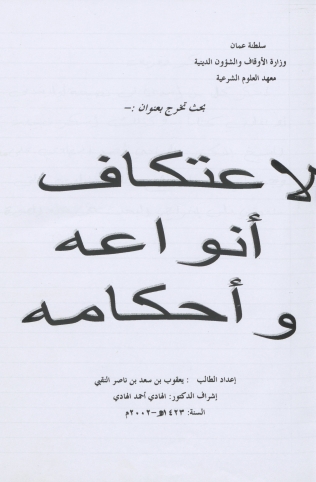 سلطنة عمان
وزارة الأوقاف والشؤون الدينية
معهد العلوم الشرعية
بحث تخرج بعنوان :-
لاعتكاف
أنواعه
وأحكامه
إعداد الطالب : يعقوب بن سعد بن ناصر النقبي
إشراف الدكتور: الهادي أحمد الهادي
السنة: ١٤٢٣هـ-٢٠٠٢م